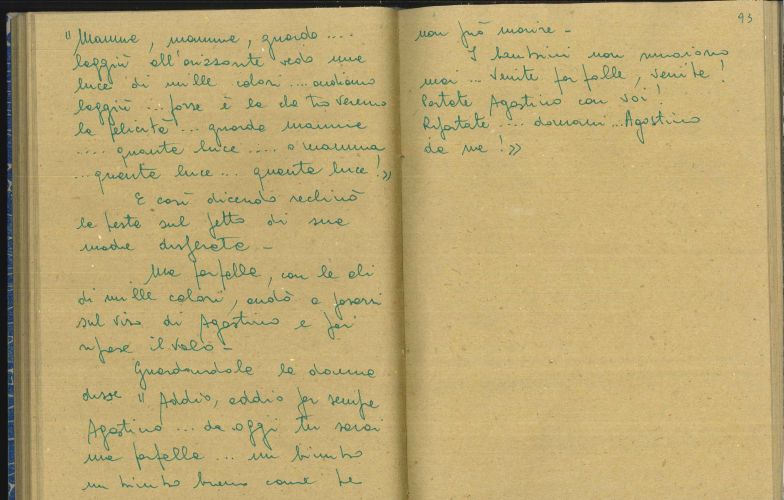 "Mamma, mamma, guarda ....
laggiù all'orizzonte vedo una
luce di mille colori .... andiamo
laggiù ... forse è la che troveremo
la felicità ... guarda mamma
..... quanta luce ..... o mamma
... quanta luce ... quanta luce!»
E così dicendo reclinò
la testa sul petto di sua
madre disperata -
Una farfalla, con le ali
di mille colori, andò a posarsi
sul viso di Agostino e poi
riprese il volo -
Guardandola la donna
disse " Addio, addio per sempre
Agostino ... da oggi tu sarai
una farfalla ... un bimbo
un bimbo buono come te
93
non può morire -
I bambini non muoiono
mai ... venite farfalle, venite!
Portate Agostino con voi!
Riportate .... domani ... Agostino
da me!»